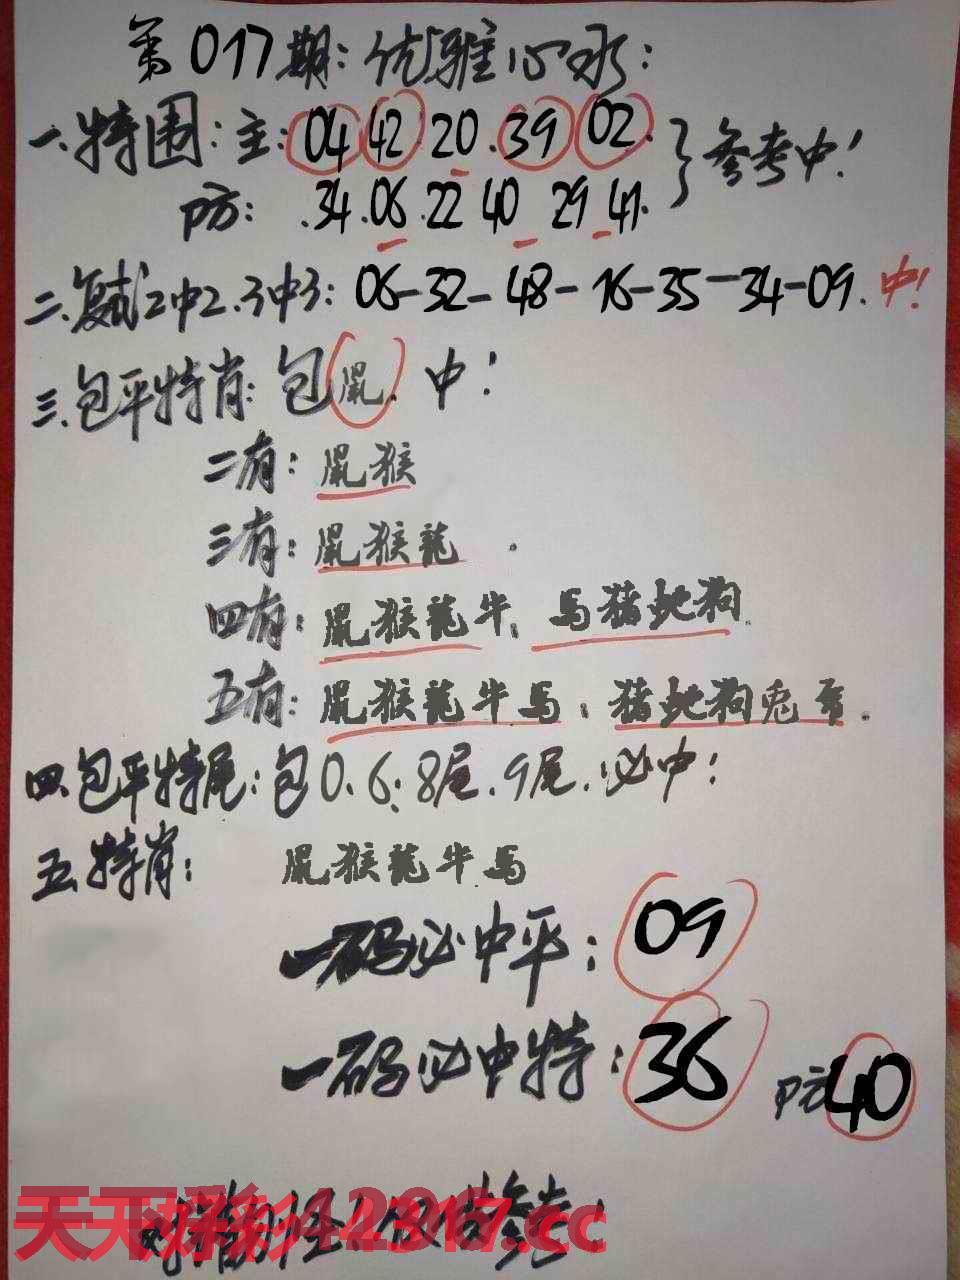 第017期：优雅心水：
一.特围：主：04 42 20.39 02.
防：.34.06.22 40 29 41.
参考中！
二.复试2中2.3中3：06-32-48-16-35-34-09.中！
三.包平特肖：包鼠.中！
二有：鼠猴
三有：鼠猴龍.
四有：鼠猴龍牛.馬猪蛇狗.
五有：鼠猴龍牛馬：猪蛇狗兎.
四.包平特尾：包0.6：8尾.9尾.必中：
五.特肖：鼠猴龍牛馬
一码必中平：09
一码必中特：36 防40
天下彩 .cc